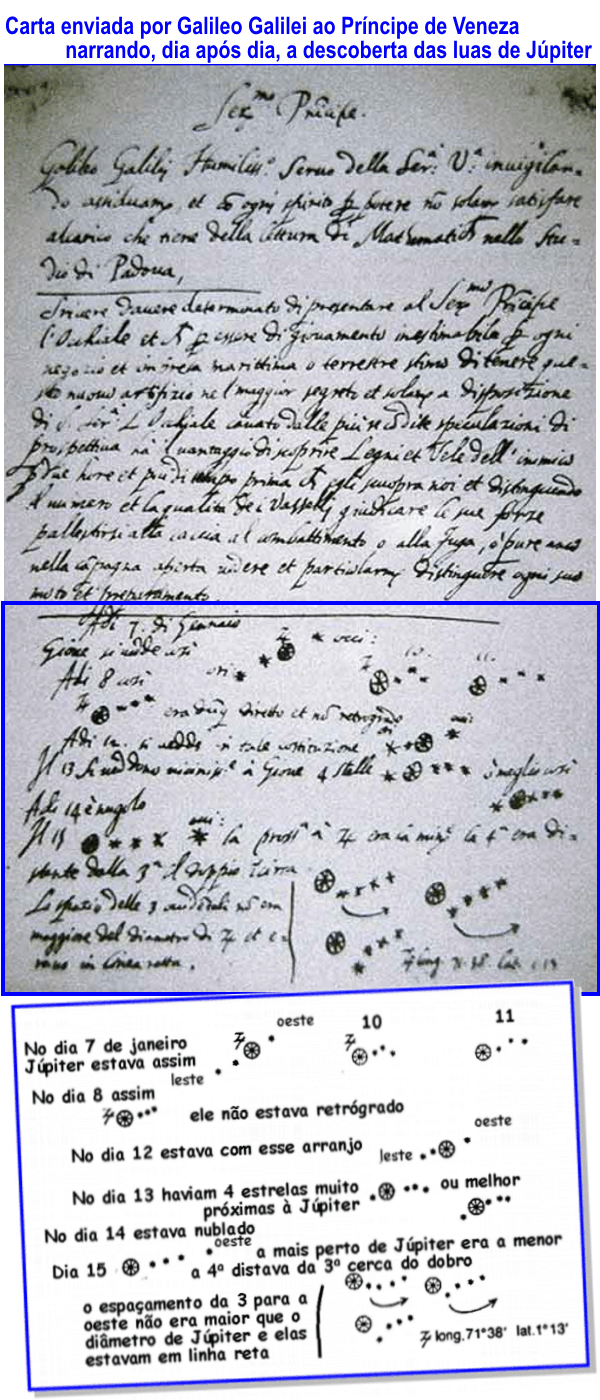 Carta enviada por Galileo Galilei ao Príncipe de Veneza
narrando, dia após dia, a descoberta das luas de Júpiter
Ser.mo Prīcipe.
Galileo Galilei Humiliss.o Servo della Ser.a V.a invigilan-
do assiduam.e, et cō ogni spirito p potere nō solam.e satisfare
alcarico che tiene della lettura di Mathematic nello Stu-
dio di Padova,
Scrivere d'avere determinato di presentare al Ser.mo Prīcipe
l'Occhiale et p essere di giovamento inestimabile p ogni
negozio et impresa marittima o terrestre stimo di tenere que-
sto nuovo artifizio nel maggior segreto et solam.e a disposizione
di S. Ser.a L'Occhiale cavato dalle più recōdite speculazioni di
prospettiva hà il vantaggio di scoprire Legni et Vele dell'inimico
p due hore et più di tempo prima egli scuopra noi et distinguendo
il numero et la qualità dei Vasselli giudicare le sue forze
pallestirsi alla caccia al combattimento o alla fuga, o pure anco
nella cāpagna aperta vedere et particolarm.e distinguere ogni suo
moto et preparamento.
Adi 7. di Gennaio
Gioue si vedde così occ:
Adi 8 così ori: 10. 11.
era dūq diretto et nō retrogrado
Adi 12. si vedde in tale costituzione occ:
Il 13 si veddono vicinis.e à Gioue 4 stelle ò meglio così
Adi 14 è nugolo
Il 15 occ: la pross.a à ♃ era la min.e la 4.a era di-
stante dalla 3.a il doppio
Lo spazio delle 3 occidētali nō era
maggiore del diametro di ♃ et e-
rano in linea retta.
♃ long. 71.38. lat. 1.13
oeste 10 11
No dia 7 de janeiro ♃ ♃
Júpiter estava assim
leste
No dia 8 assim
♃ ele não estava retrógrado
oeste
No dia 12 estava com esse arranjo leste
No dia 13 haviam 4 estrelas muito ou melhor
próximas à Júpiter
No dia 14 estava nublado
oeste a mais perto de Júpiter era a menor
Dia 15 a 4ª distava da 3ª cerca do dobro
o espaçamento da 3 para a
oeste não era maior que o
diâmetro de Júpiter e elas
estavam em linha reta
♃ long.71°38' lat.1°13'